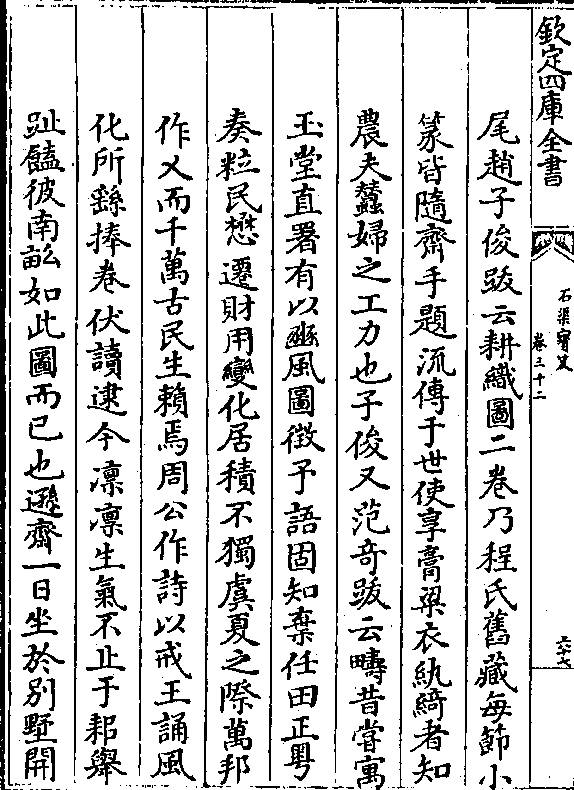 欽定四庫全書
石渠寶笈
卷三十二
六十七
尾趙子俊跋云耕織圖二卷乃程氏舊藏每節小
篆皆隨齋手題流傳于世使享膏粱衣紈綺者知
農夫蠶婦之工力也子俊又范奇跋云疇昔嘗寓
玉堂直署有以豳風圖徴予語固知棄任田正粤
奏粒民懋遷財用變化居積不獨虞夏之際萬邦
作乂而千萬古民生賴焉周公作詩以戒王誦風
化所繇捧卷伏讀逮今凜凜生氣不止于耜舉
趾饁彼南畝如此圖而已也遜齋一日坐於别墅開